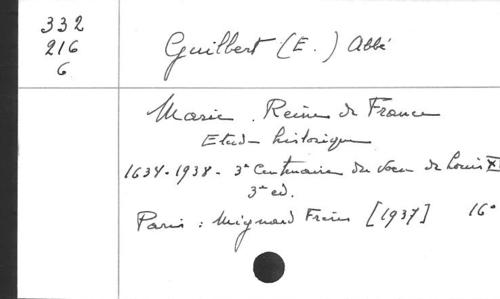 332
216
6
Guilbert (E.) Abbé
Marie. Reine de France
Etude historique
1634-1938 - 3e Centenaire du voeu de Louis XI
3e ed.
Paris : Mignard Frères [1937] 16°